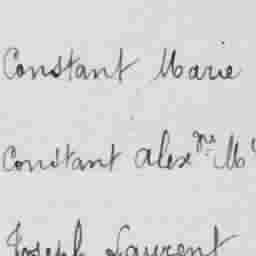 Constant Marie
Constant Alex^ne M^e
Joseph Laurent